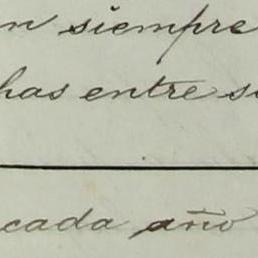 n siempre
has entre s
cada año